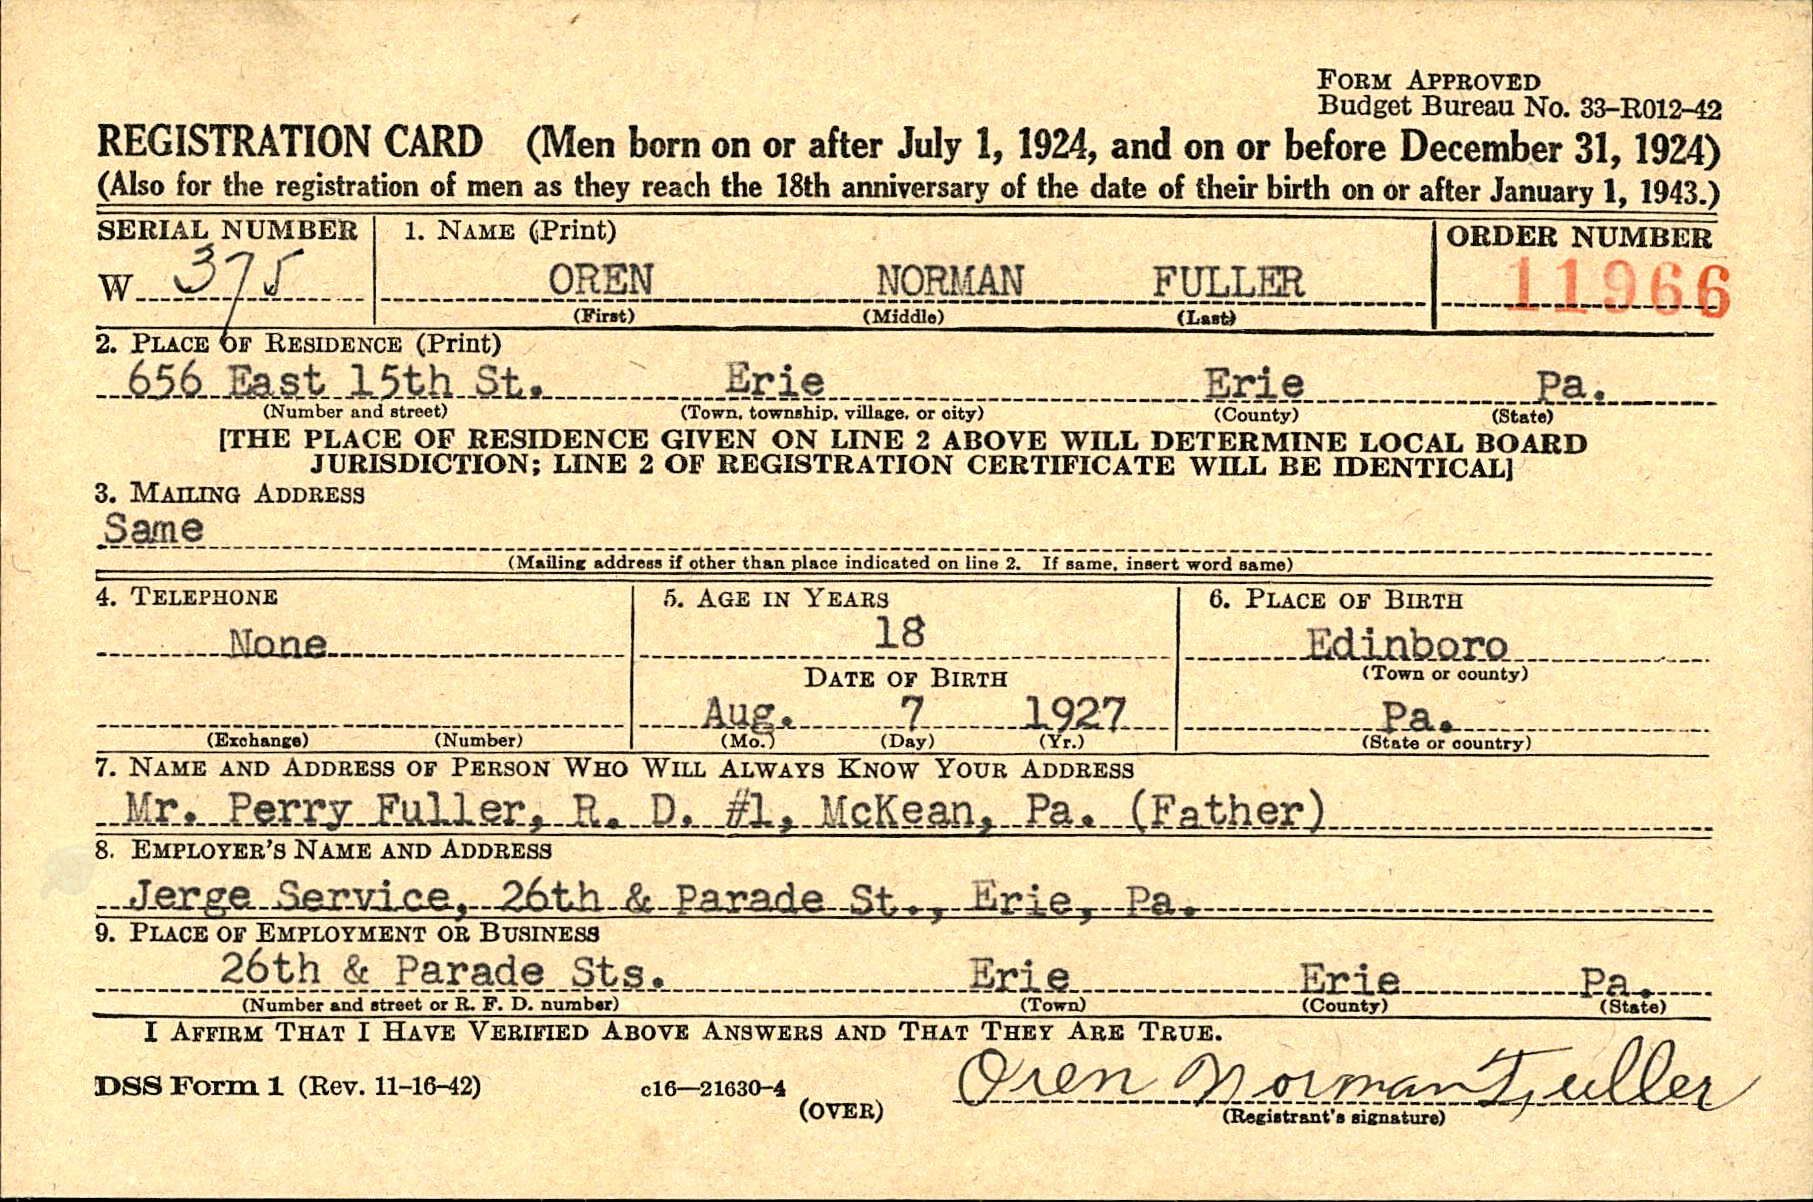 FORM APPROVED
Budget Bureau No. 33–R012–42
REGISTRATION CARD (Men born on or after July 1, 1924, and on or before December 31, 1924)
(Also for the registration of men as they reach the 18th anniversary of the date of their birth on or after January 1, 1943.)
SERIAL NUMBER 1. NAME (Print) ORDER NUMBER
W 375 OREN NORMAN FULLER 11966
(First) (Middle) (Last)
2. PLACE OF RESIDENCE (Print)
656 East 15th St. Erie Erie Pa.
(Number and street) (Town, township, village, or city) (County) (State)
[THE PLACE OF RESIDENCE GIVEN ON LINE 2 ABOVE WILL DETERMINE LOCAL BOARD
JURISDICTION; LINE 2 OF REGISTRATION CERTIFICATE WILL BE IDENTICAL]
3. MAILING ADDRESS
Same
(Mailing address if other than place indicated on line 2. If same, insert word same)
4. TELEPHONE 5. AGE IN YEARS 6. PLACE OF BIRTH
None 18 Edinboro
(Town or county)
DATE OF BIRTH
Aug. 7 1927 Pa.
(Exchange) (Number) (Mo.) (Day) (Yr.) (State or country)
7. NAME AND ADDRESS OF PERSON WHO WILL ALWAYS KNOW YOUR ADDRESS
Mr. Perry Fuller, R. D. #1, McKean, Pa. (Father)
8. EMPLOYER'S NAME AND ADDRESS
Jerge Service, 26th & Parade St., Erie, Pa.
9. PLACE OF EMPLOYMENT OR BUSINESS
26th & Parade Sts. Erie Erie Pa.
(Number and street or R. F. D. number) (Town) (County) (State)
I AFFIRM THAT I HAVE VERIFIED ABOVE ANSWERS AND THAT THEY ARE TRUE.
DSS Form 1 (Rev. 11–16–42) c16—21630–4 (OVER) Oren Norman Fuller
(Registrant's signature)